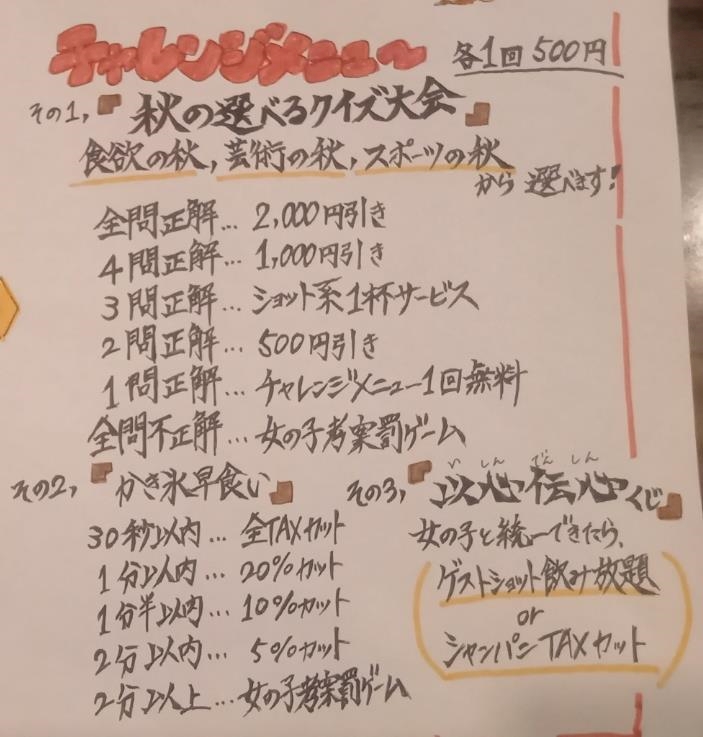 チャレンジメニュー 各1回500円
その1,『秋の選べるクイズ大会』
食欲の秋,芸術の秋,スポーツの秋
から選べます!
全問正解… 2,000円引き
4問正解… 1,000円引き
3問正解… ショット系1杯サービス
2問正解… 500円引き
1問正解… チャレンジメニュー1回無料
全問不正解… 女の子考案罰ゲーム
その2,『かき氷早食い』
30秒以内… 全TAXカット
1分以内… 20%カット
1分半以内… 10%カット
2分以内… 5%カット
2分以上… 女の子考案罰ゲーム
いしんでんしん
その3,『以心伝心くじ』
女の子と統一できたら、
ゲストショット飲み放題
or
シャンパンTAXカット